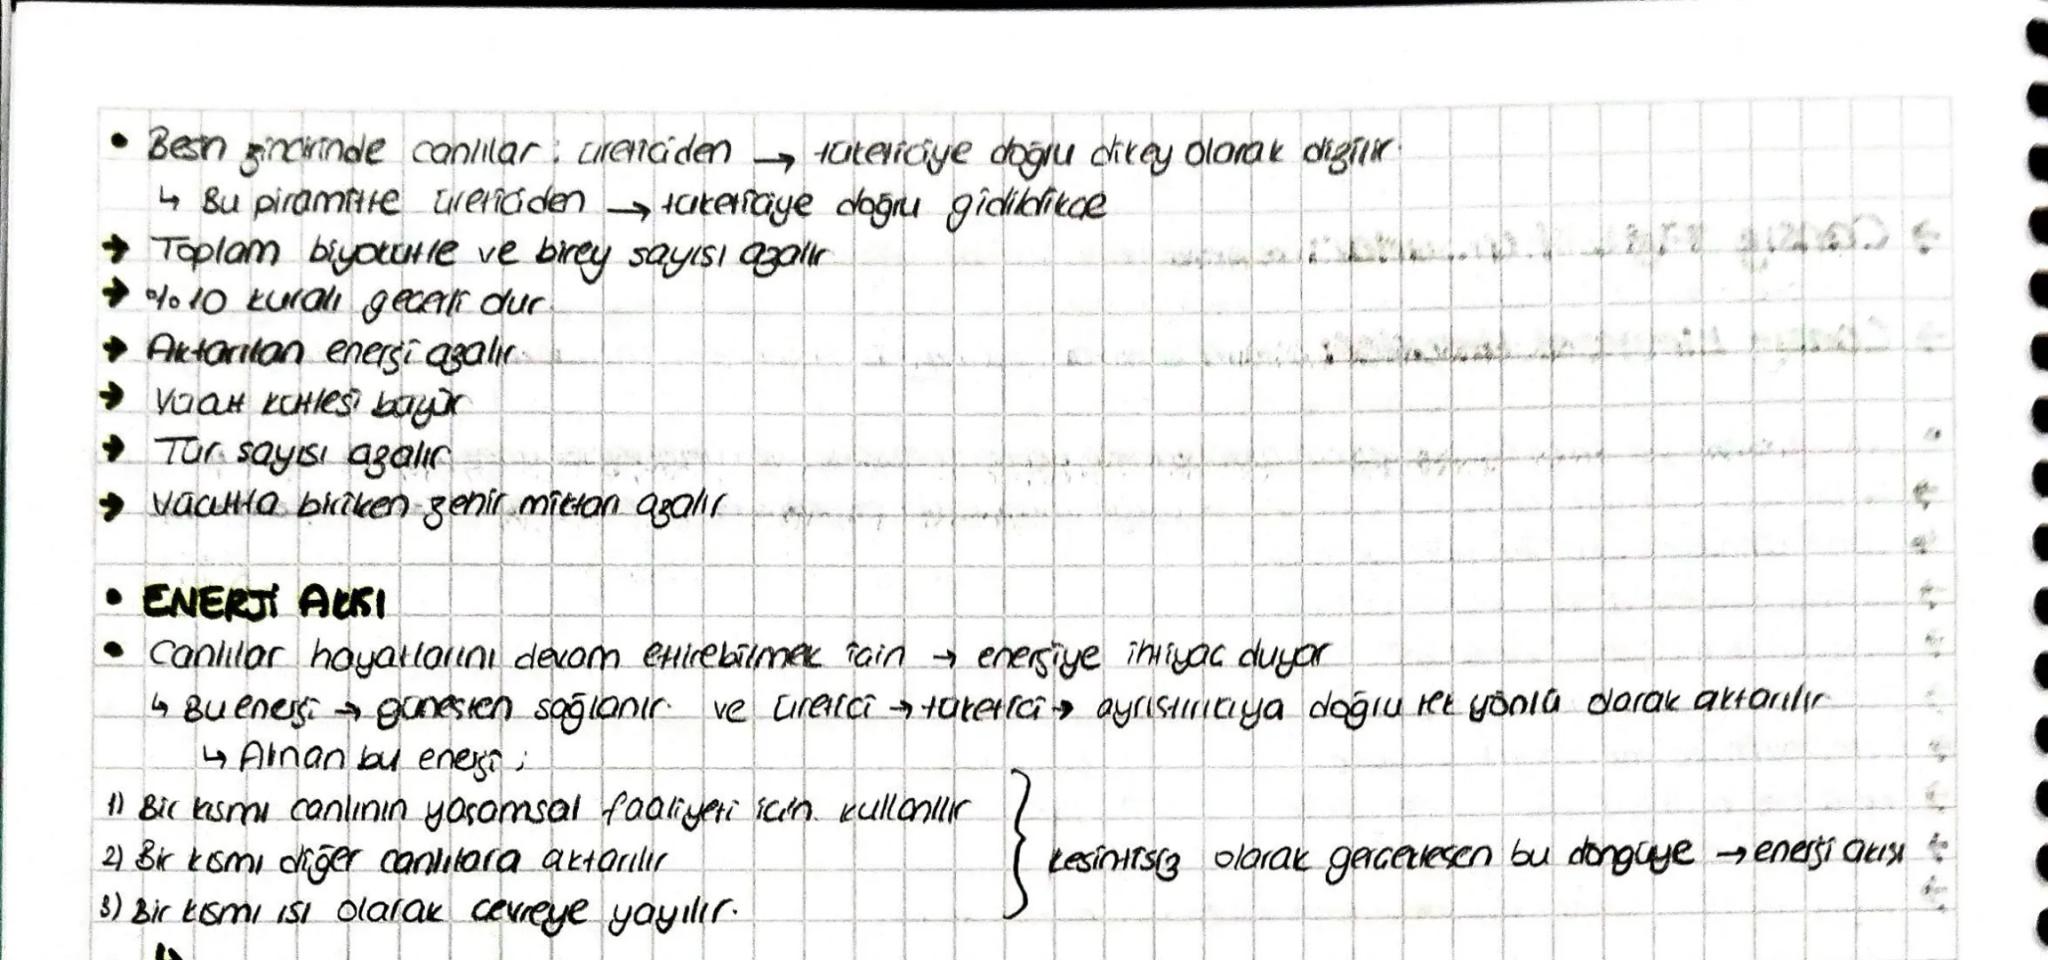 • Besin zincirinde canlılar ; üreticiden → tüketiciye doğru dikey olarak dizilir.
↳ Bu piramitte üreticiden → tüketiciye doğru gidildikçe
→ Toplam biyokütle ve birey sayısı azalır
→ %10 kuralı geçerli dur.
→ Aktarılan enerji azalır.
→ Vücut kütlesi büyür
→ Tür sayısı azalır
→ Vücutta biriken zehir miktarı azalır
• ENERJİ AKIŞI
• Canlılar hayatlarını devam ettirebilmek için → enerjiye ihtiyaç duyar
↳ Bu enerji → güneşten sağlanır. ve üretici → tüketici → ayrıştırıcıya doğru tek yönlü olarak aktarılır
↳ Alınan bu enerji ;
1) Bir kısmı canlının yaşamsal faaliyeti için kullanılır
2) Bir kısmı diğer canlılara aktarılır
3) Bir kısmı ısı olarak çevreye yayılır.
} kesintisiz olarak gerçekleşen bu döngüye → enerji akışı